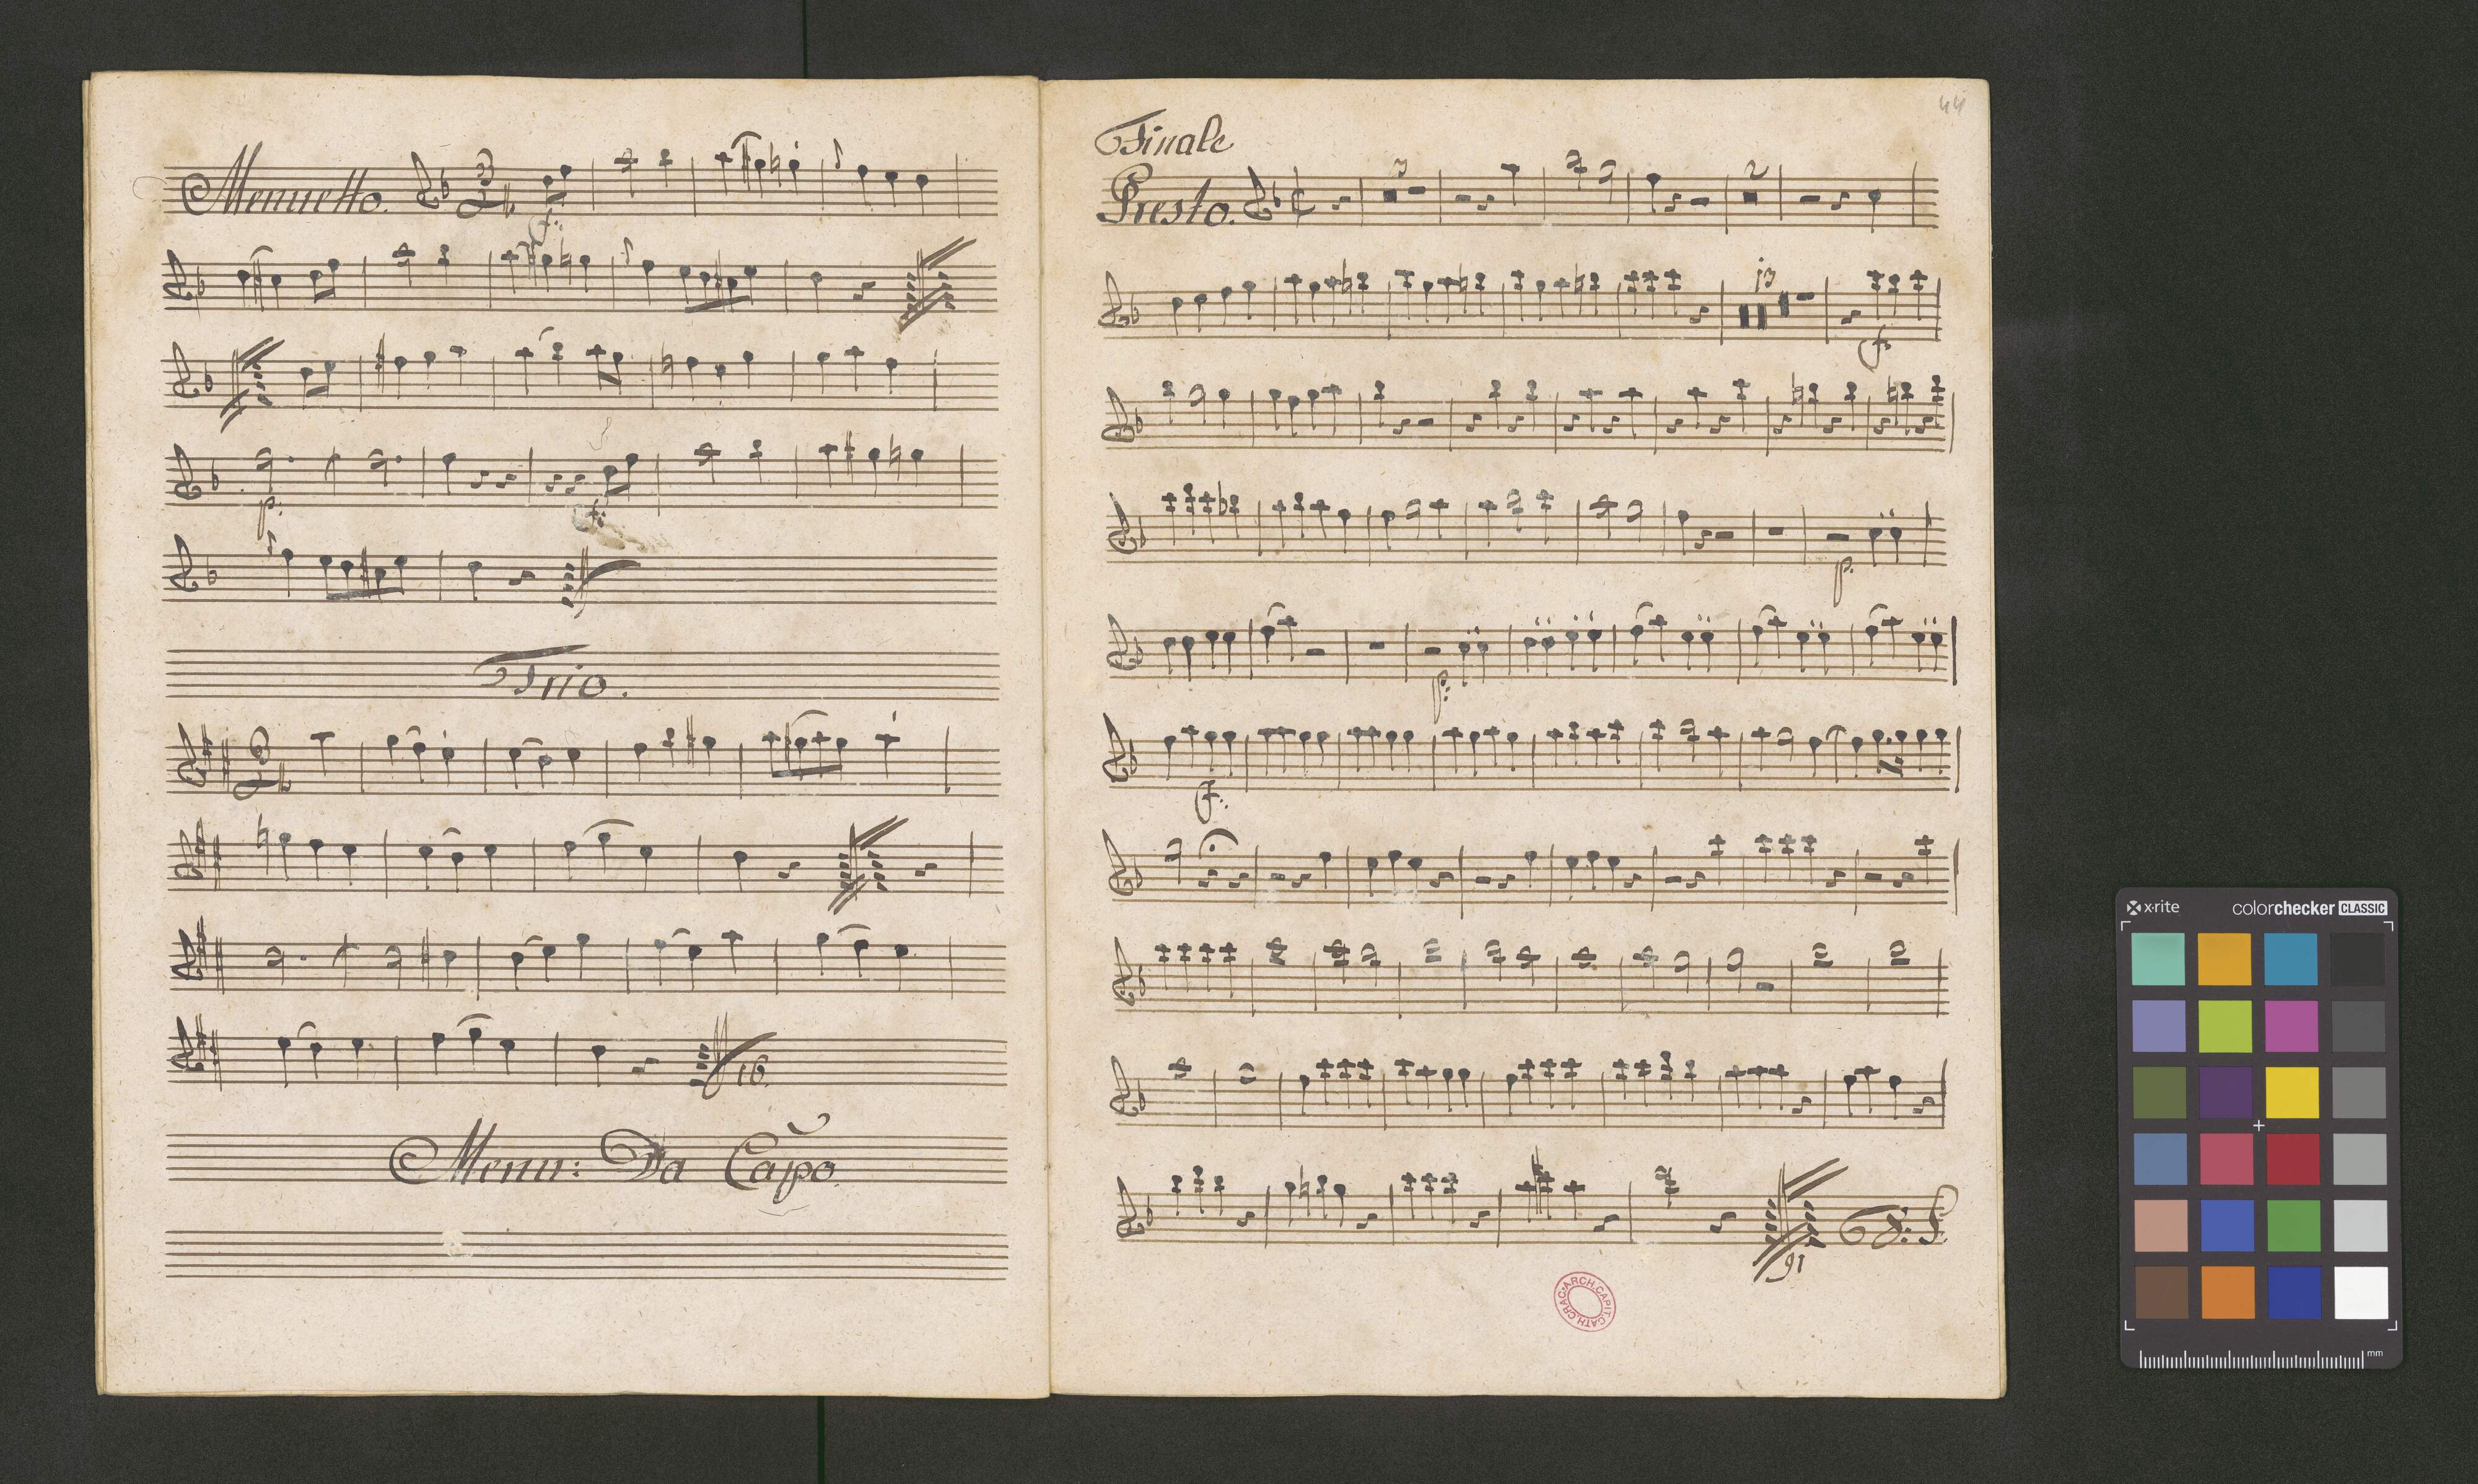 Menuetto. 3
f.
p. f.
Trio.
3
16.
Menu: Da Capo.
44
Finale
Presto. 3 2
13
f.
p.
p.
f.
91
ARCH.CAPIT.CATH.CRAC.
x·rite colorchecker CLASSIC
mm